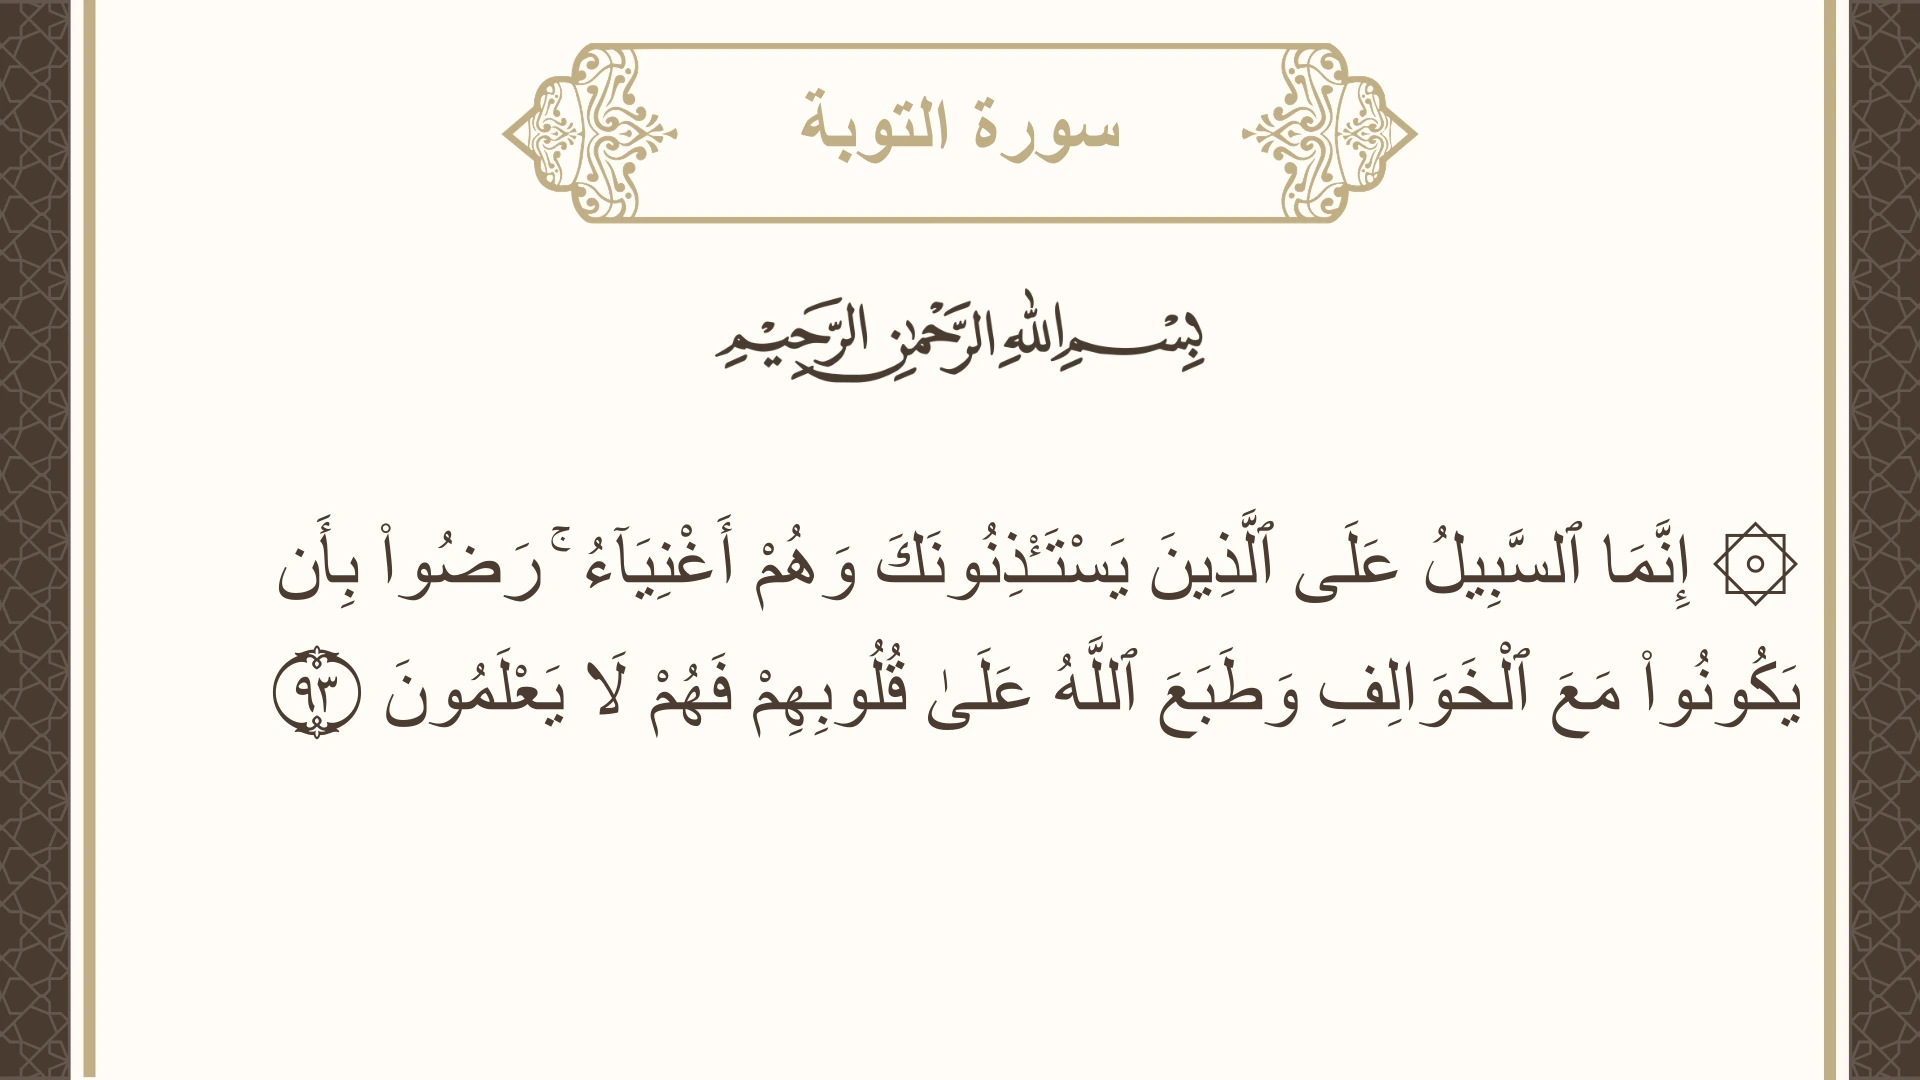 سورة التوبة
بِسْمِ اللهِ الرَّحْمٰنِ الرَّحِيْمِ
۞ إِنَّمَا ٱلسَّبِيلُ عَلَى ٱلَّذِينَ يَسْتَـْٔذِنُونَكَ وَهُمْ أَغْنِيَآءُ ۚ رَضُوا۟ بِأَن
يَكُونُوا۟ مَعَ ٱلْخَوَالِفِ وَطَبَعَ ٱللَّهُ عَلَىٰ قُلُوبِهِمْ فَهُمْ لَا يَعْلَمُونَ ٩٣